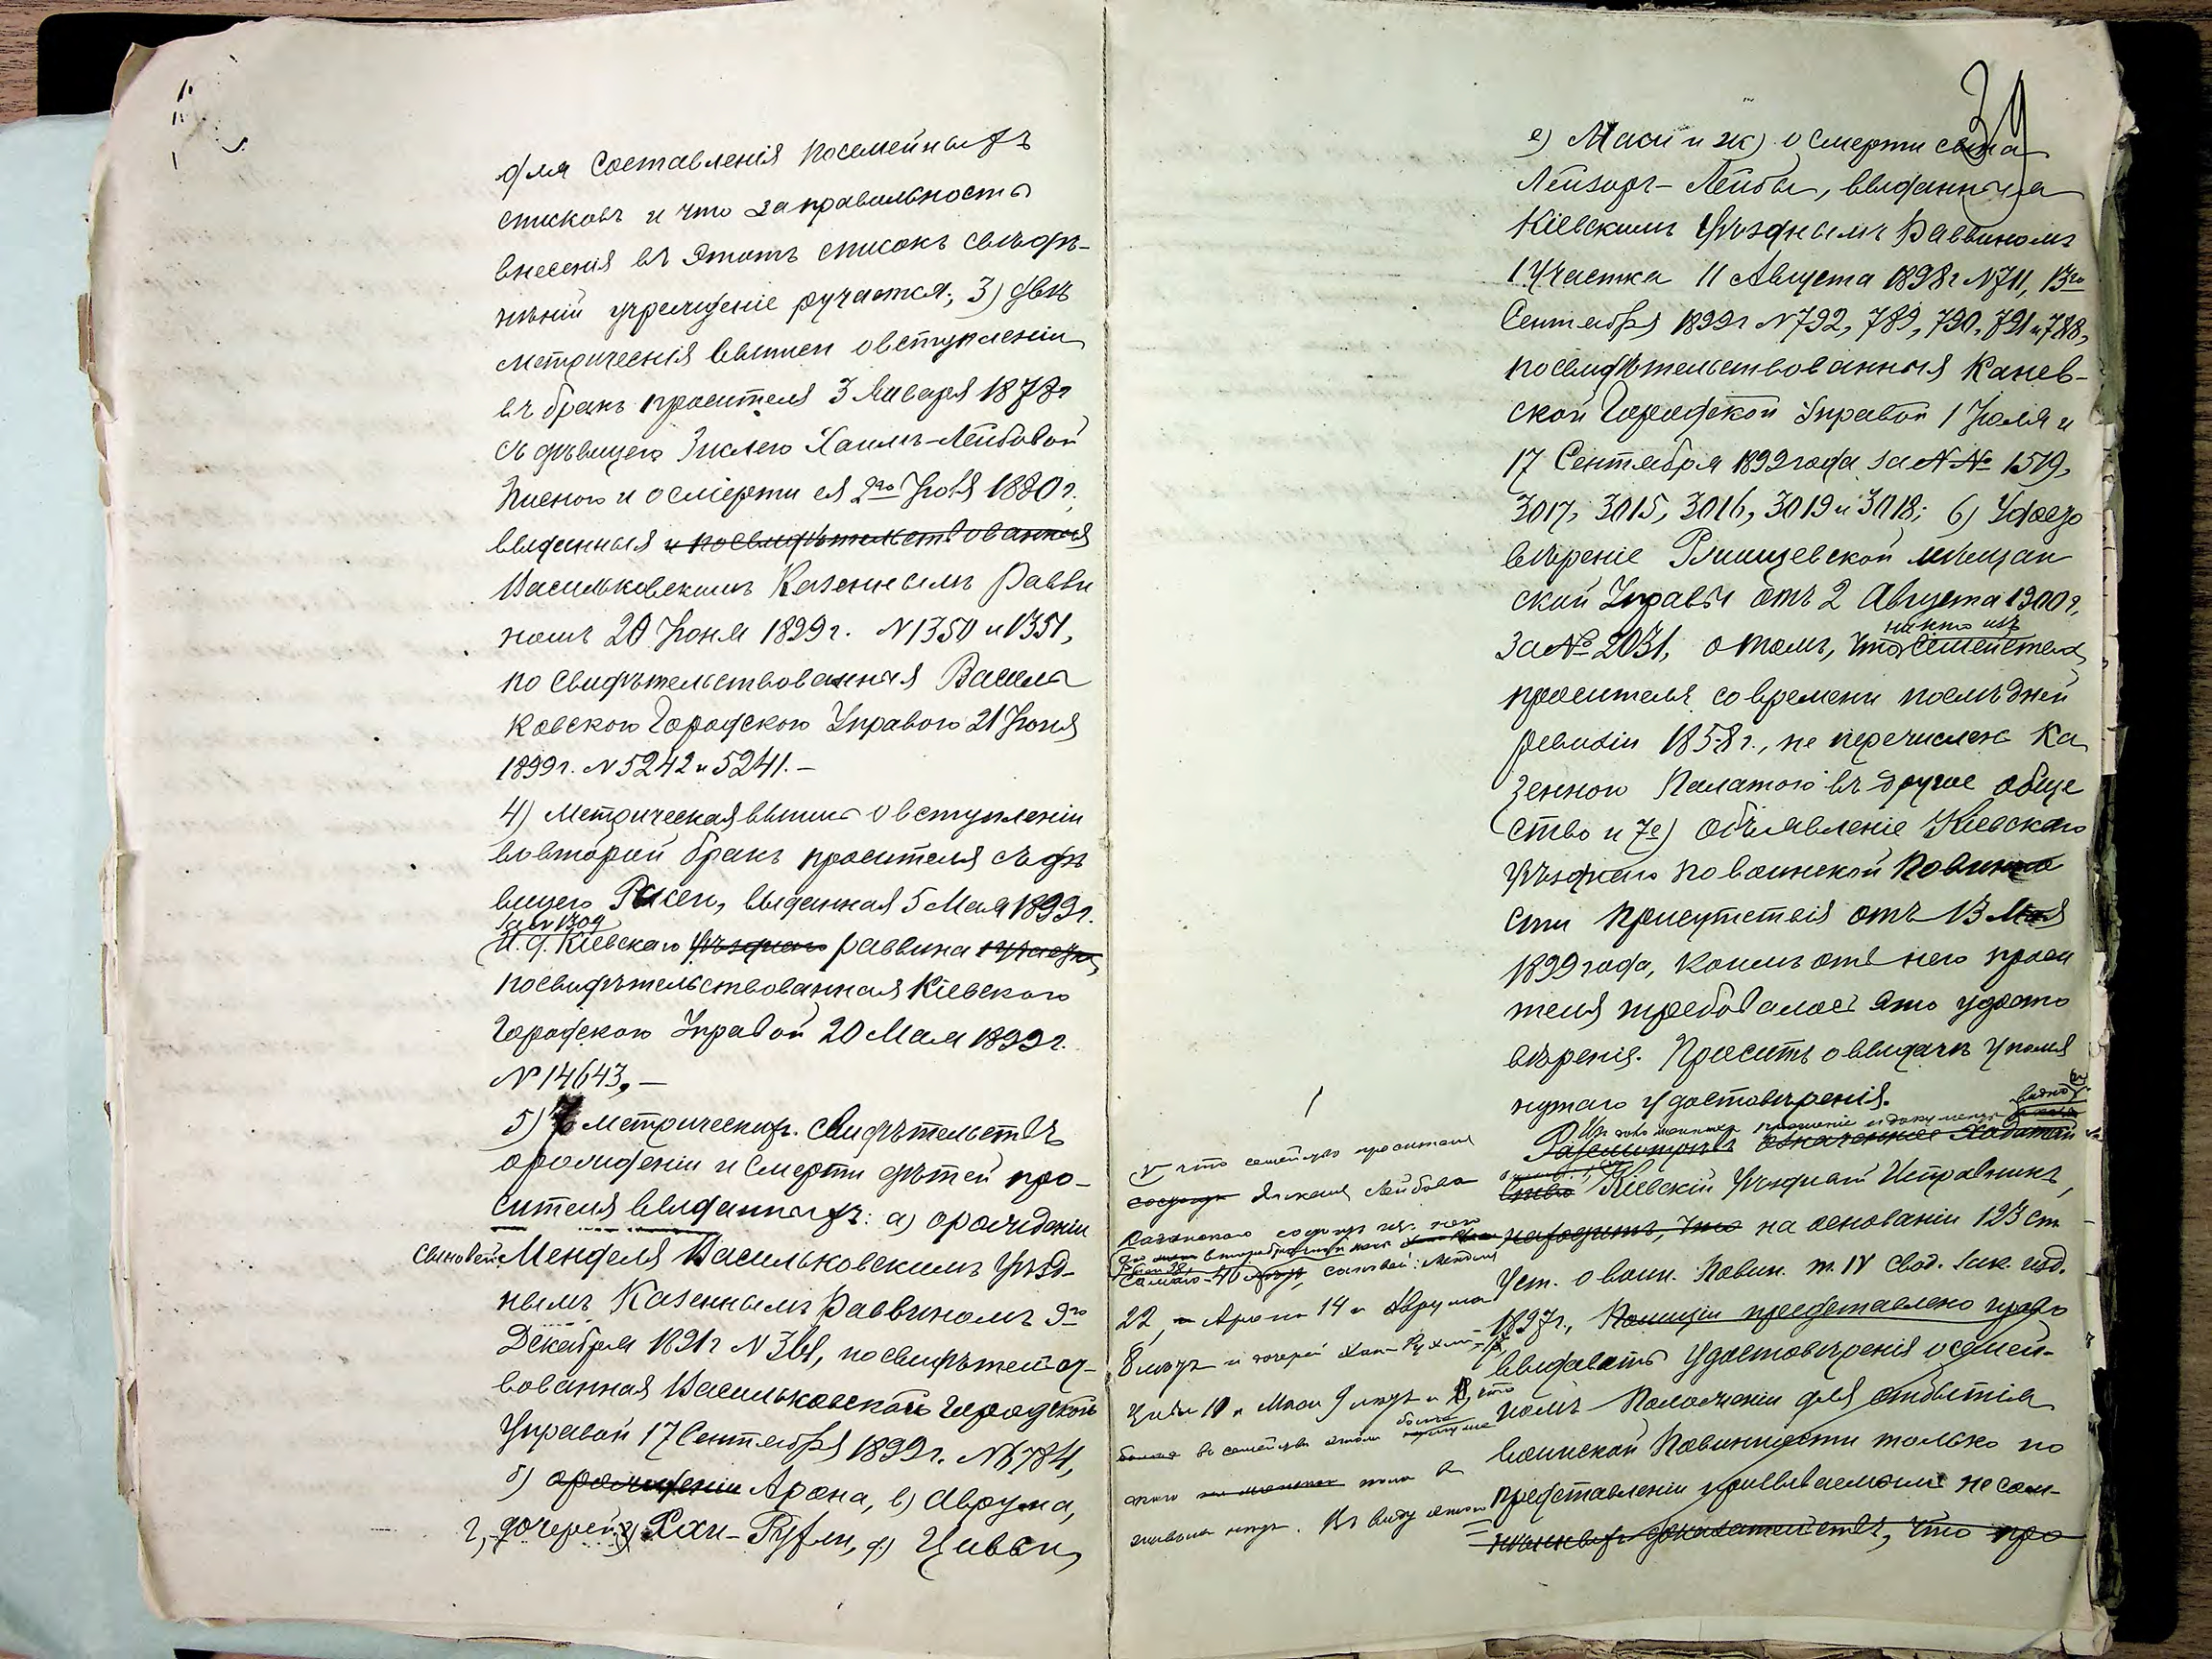 для составленія посемейныхъ
списковъ и что за правильность
внесенія въ этотъ списокъ свѣдѣ-
ній учрежденіе ручается; 3) двѣ
метрическія выписи о вступленіи
въ бракъ просителя 3 Января 1878г
съ дѣвицею Хаимъ-Лейбовой
и о смерти ея 2го 1880г.,
выданныя и посвидѣтельствованныя
Васильковскимъ Казеннымъ Равви
номъ 20 Іюня 1899г. N1350 и 1351,
посвидѣтельствованныя Василь
ковскою Городскою Управою 21 Іюня
1899г. N5242 и 5241.-
4) Метрическая выпись о вступленіи
во второй бракъ просителя съ дѣ
вицею выданная 5 Мая 1899г.
за N 1309
И. д. Кіевскаго Уѣзднаго раввина
посвидѣтельствованная Кіевскою
Городскою Управой 20 Мая 1899г.
N 14643.-
5) 7 метрическихъ свидѣтельствъ
о рожденіи и смерти дѣтей про-
сителя выданныхъ: а) о рожденіи
сыновей: Менделя Васильковскимъ Уѣзд-
нымъ Казеннымъ Раввиномъ 9го
Декабря 1891г N 361, посвидѣтельст-
вованная Васильковской Городской
Управой 17 Сентября 1899г. N6784,
б) о рожденіи Арона, в) Аврума,
г, дочерей: Хаи-Рухли, д) Цивьи,
39
е) Маси и ж) о смерти сына
Лейзоръ-Лейбы, выданныя
Кіевскимъ Уѣзднымъ Раввиномъ
1 Участка 11 Августа 1898г N711, 13го
Сентября 1899г N792, 789, 790, 791 и 788,
посвидѣтельствованныя Канев-
ской Городской Управой 1 Іюля и
17 Сентября 1899 года за N№ 1519,
3017, 3015, 3016, 3019 и 3018; 6) Удосто
вѣреніе Ржищевской мѣщан
ской Управы отъ 2 Августа 1900г.
никто изъ
за № 2031, о томъ, что семейства
просителя со времени послѣдней
ревизіи 1858г., не перечисленъ Ка
зенною Палатою въ другое обще
ство и 7е) объявленіе Кіевскаго
Уѣзднаго по воинской повинно
сти Присутствія отъ 13 Мая
1899 года, коимъ отъ него проси
теля требовалось это удосто
вѣреніе. Проситъ о выдачѣ упомя
нутаго удостовѣренія.
прошеніе и документы
Разсмотрѣвъ означенное ходатай
ство Кіевскій Уѣздный Исправникъ,
находитъ, что на основаніи 123 ст.
Уст. о воин. Повин. т. IV Свод. Зак. изд.
1897г., Полиціи предоставлено право
выдавать удостовѣренія о семей-
номъ положеніи для отбытія
воинской Повинности только по
представленіи призываемыми несом-
нѣнныхъ доказательствъ, что про
V что семейство просителя
Лейбова
22, Арона 14 и Аврума
8 лѣтъ и дочерей Хаи-Рухли
Цивьи 10 и Маси 9 лѣтъ и что
больше
болѣе въ семействѣ этомъ
никого
Въ виду этого